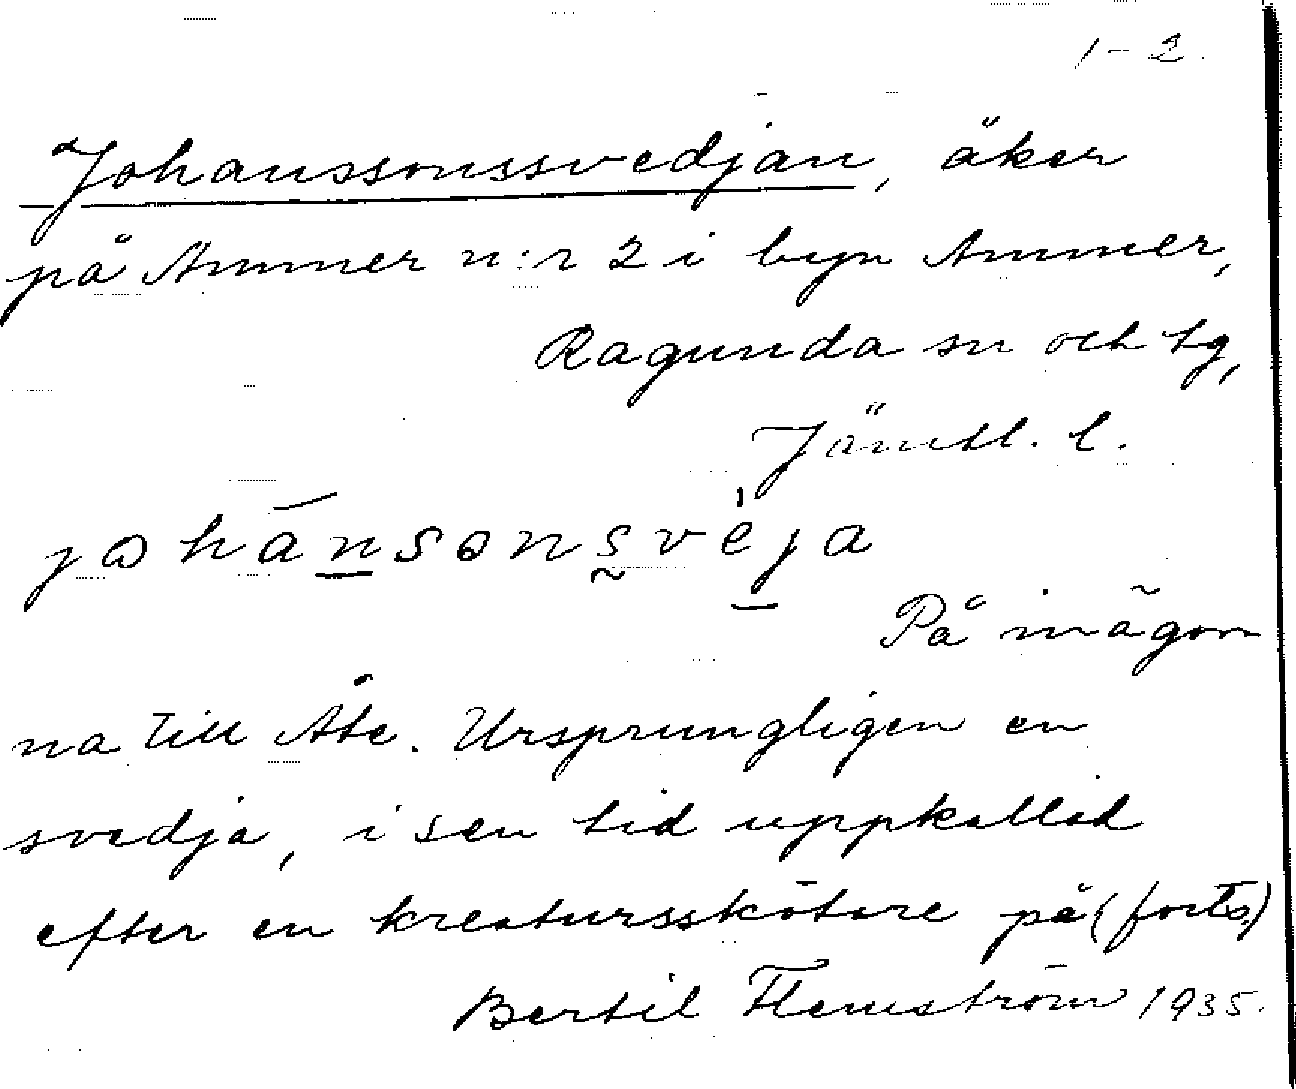 1-2.
Johanssonssvedjan, åker
på Ammer n:r 2 i byn Ammer,
Ragunda sn och tg,
Jämtl. l.
johánsonsvèja
På mågon
na till Åbe. Ursprungligen en
svedja, i sen tid uppkallad
efter en kreatursskötare på (forts)
Bertil Flemström 1935.